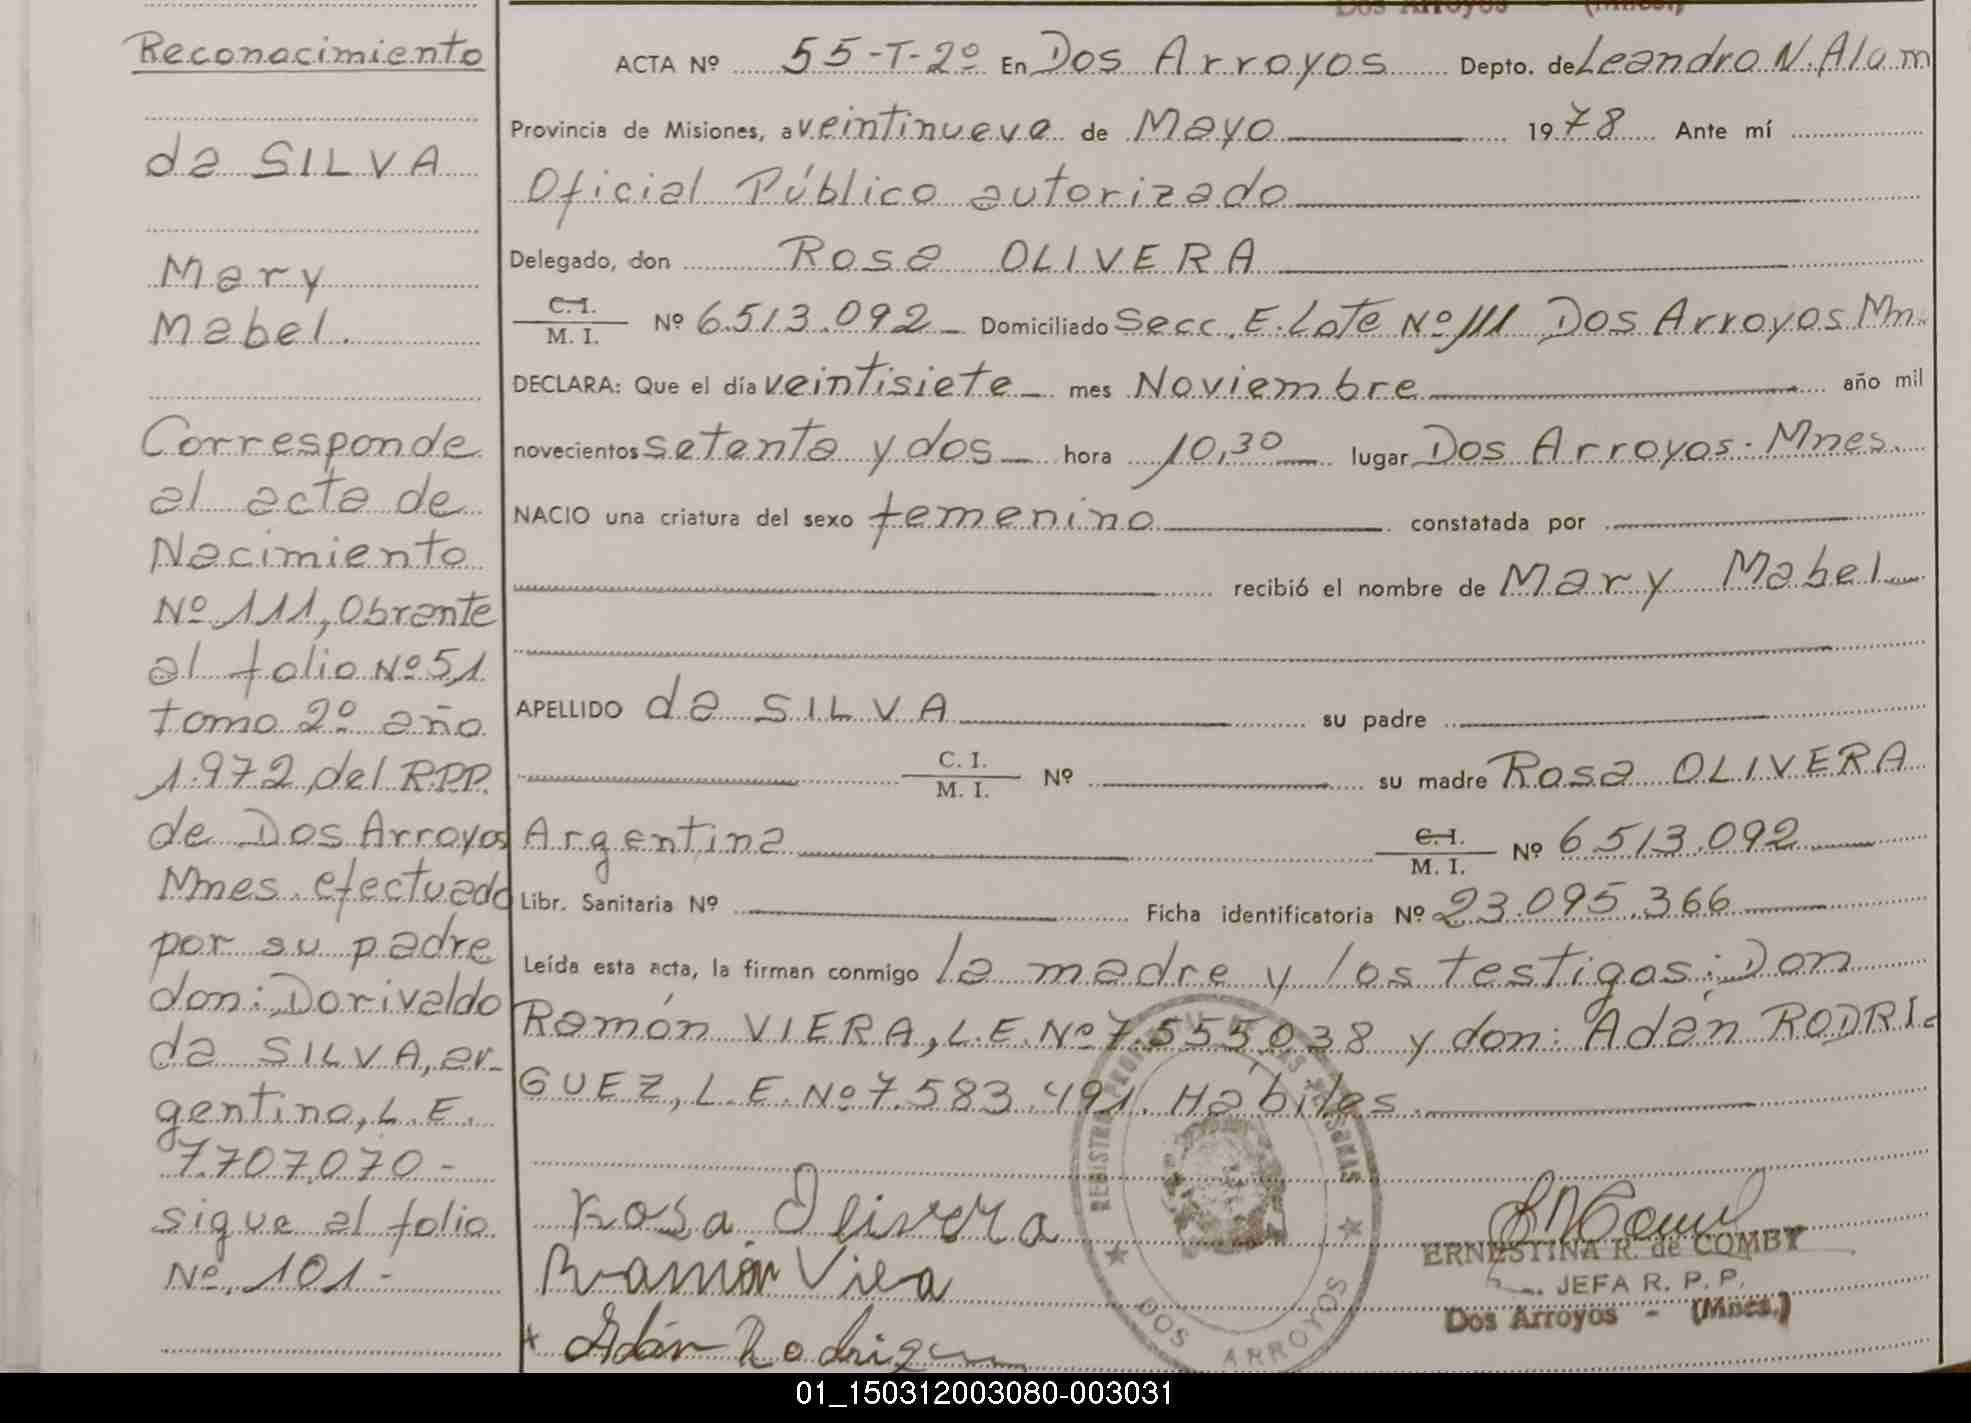 Reconocimiento
da SILVA
Mary
Mabel.
Corresponde
al acta de
Nacimiento
Nº 111, Obrante
al folio Nº 51
tomo 2º año
1.972 del R.P.P.
de Dos Arroyos
Mnes. efectuado
por su padre
don: Dorivaldo
da SILVA, ar-
gentino, L.E.
7.707.070-
sigue al folio
Nº 101-
Dos Arroyos - (Mnes.)
ACTA Nº 55-T-2º En Dos Arroyos Depto. de Leandro N. Alem
Provincia de Misiones, a veintinueve de Mayo 1978 Ante mí
Oficial Público autorizado
Delegado, don Rosa OLIVERA
C. I.
M. I. Nº 6.513.092 Domiciliado Secc. E. Lote Nº 111 Dos Arroyos Mn.
DECLARA: Que el día veintisiete mes Noviembre año mil
novecientos setenta y dos hora 10,30 lugar Dos Arroyos. Mnes.
NACIO una criatura del sexo femenino constatada por
recibió el nombre de Mary Mabel
APELLIDO da SILVA su padre
C. I.
M. I. Nº su madre Rosa OLIVERA
Argentina C. I.
M. I. Nº 6.513.092
Libr. Sanitaria Nº Ficha identificatoria Nº 23.095.366
Leída esta acta, la firman conmigo la madre y los testigos: Don
Ramón VIERA, L.E. Nº 7.555.038 y don: Adán RODRI-
GUEZ, L.E. Nº 7.583.491. Hábiles.
REGISTRO DE LAS PERSONAS
DOS ARROYOS
Rosa Olivera
Ramón Viera
Adán Rodriguez
ERNESTINA R. de COMBY
JEFA R. P. P.
Dos Arroyos - (Mnes.)
01_150312003080-003031